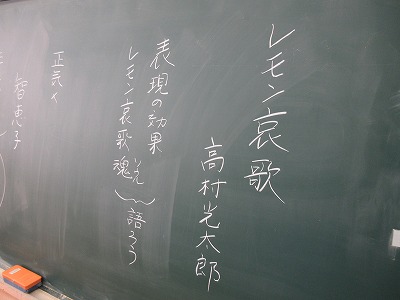 レモン哀歌
高村光太郎
表現の効果
レモン哀歌魂 語ろう
正気
智恵子